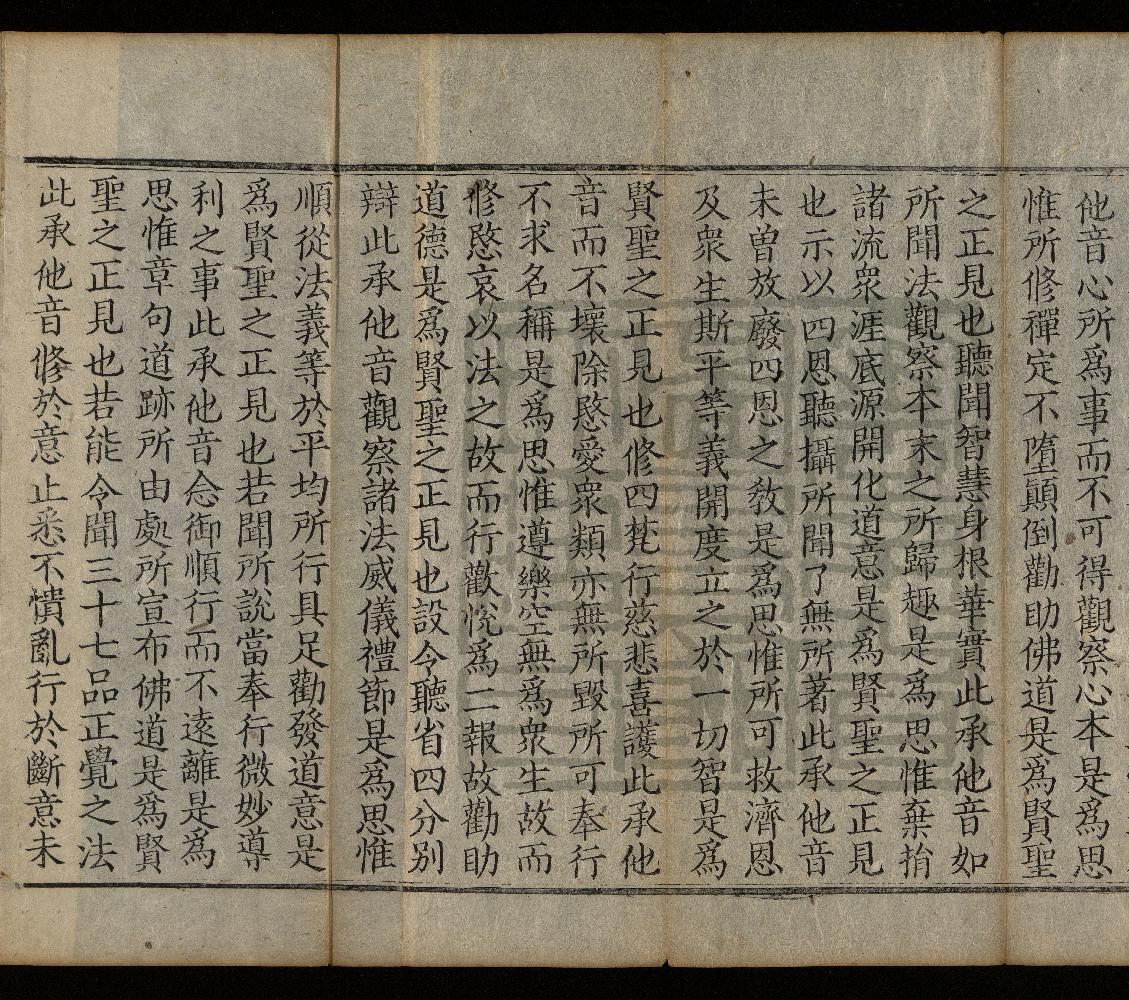 他音心所為事而不可得觀察心本是為思
惟所修禪定不墮顛倒勸助佛道是為賢聖
之正見也聽聞智慧身根華實此承他音如
所聞法觀察本末之所歸趣是為思惟棄捐
諸流衆涯底源開化道意是為賢聖之正見
也示以四恩聽攝所聞了無所著此承他音
未曾放廢四恩之教是為思惟所可救濟恩
及衆生斯平等義開度立之於一切智是為
賢聖之正見也修四梵行慈悲喜護此承他
音而不壞除愍愛衆類亦無所毀所可奉行
不求名稱是為思惟遵樂空無為衆生故而
修愍哀以法之故而行歡悅為二報故勸助
道德是為賢聖之正見也設令聽省四分別
辯此承他音觀察諸法威儀禮節是為思惟
順從法義等於平均所行具足勸發道意是
為賢聖之正見也若聞所說當奉行微妙導
利之事此承他音念御順行而不遠離是為
思惟章句道跡所由處所宣布佛道是為賢
聖之正見也若能令聞三十七品正覺之法
此承他音修於意止悉不憒亂行於斷意未